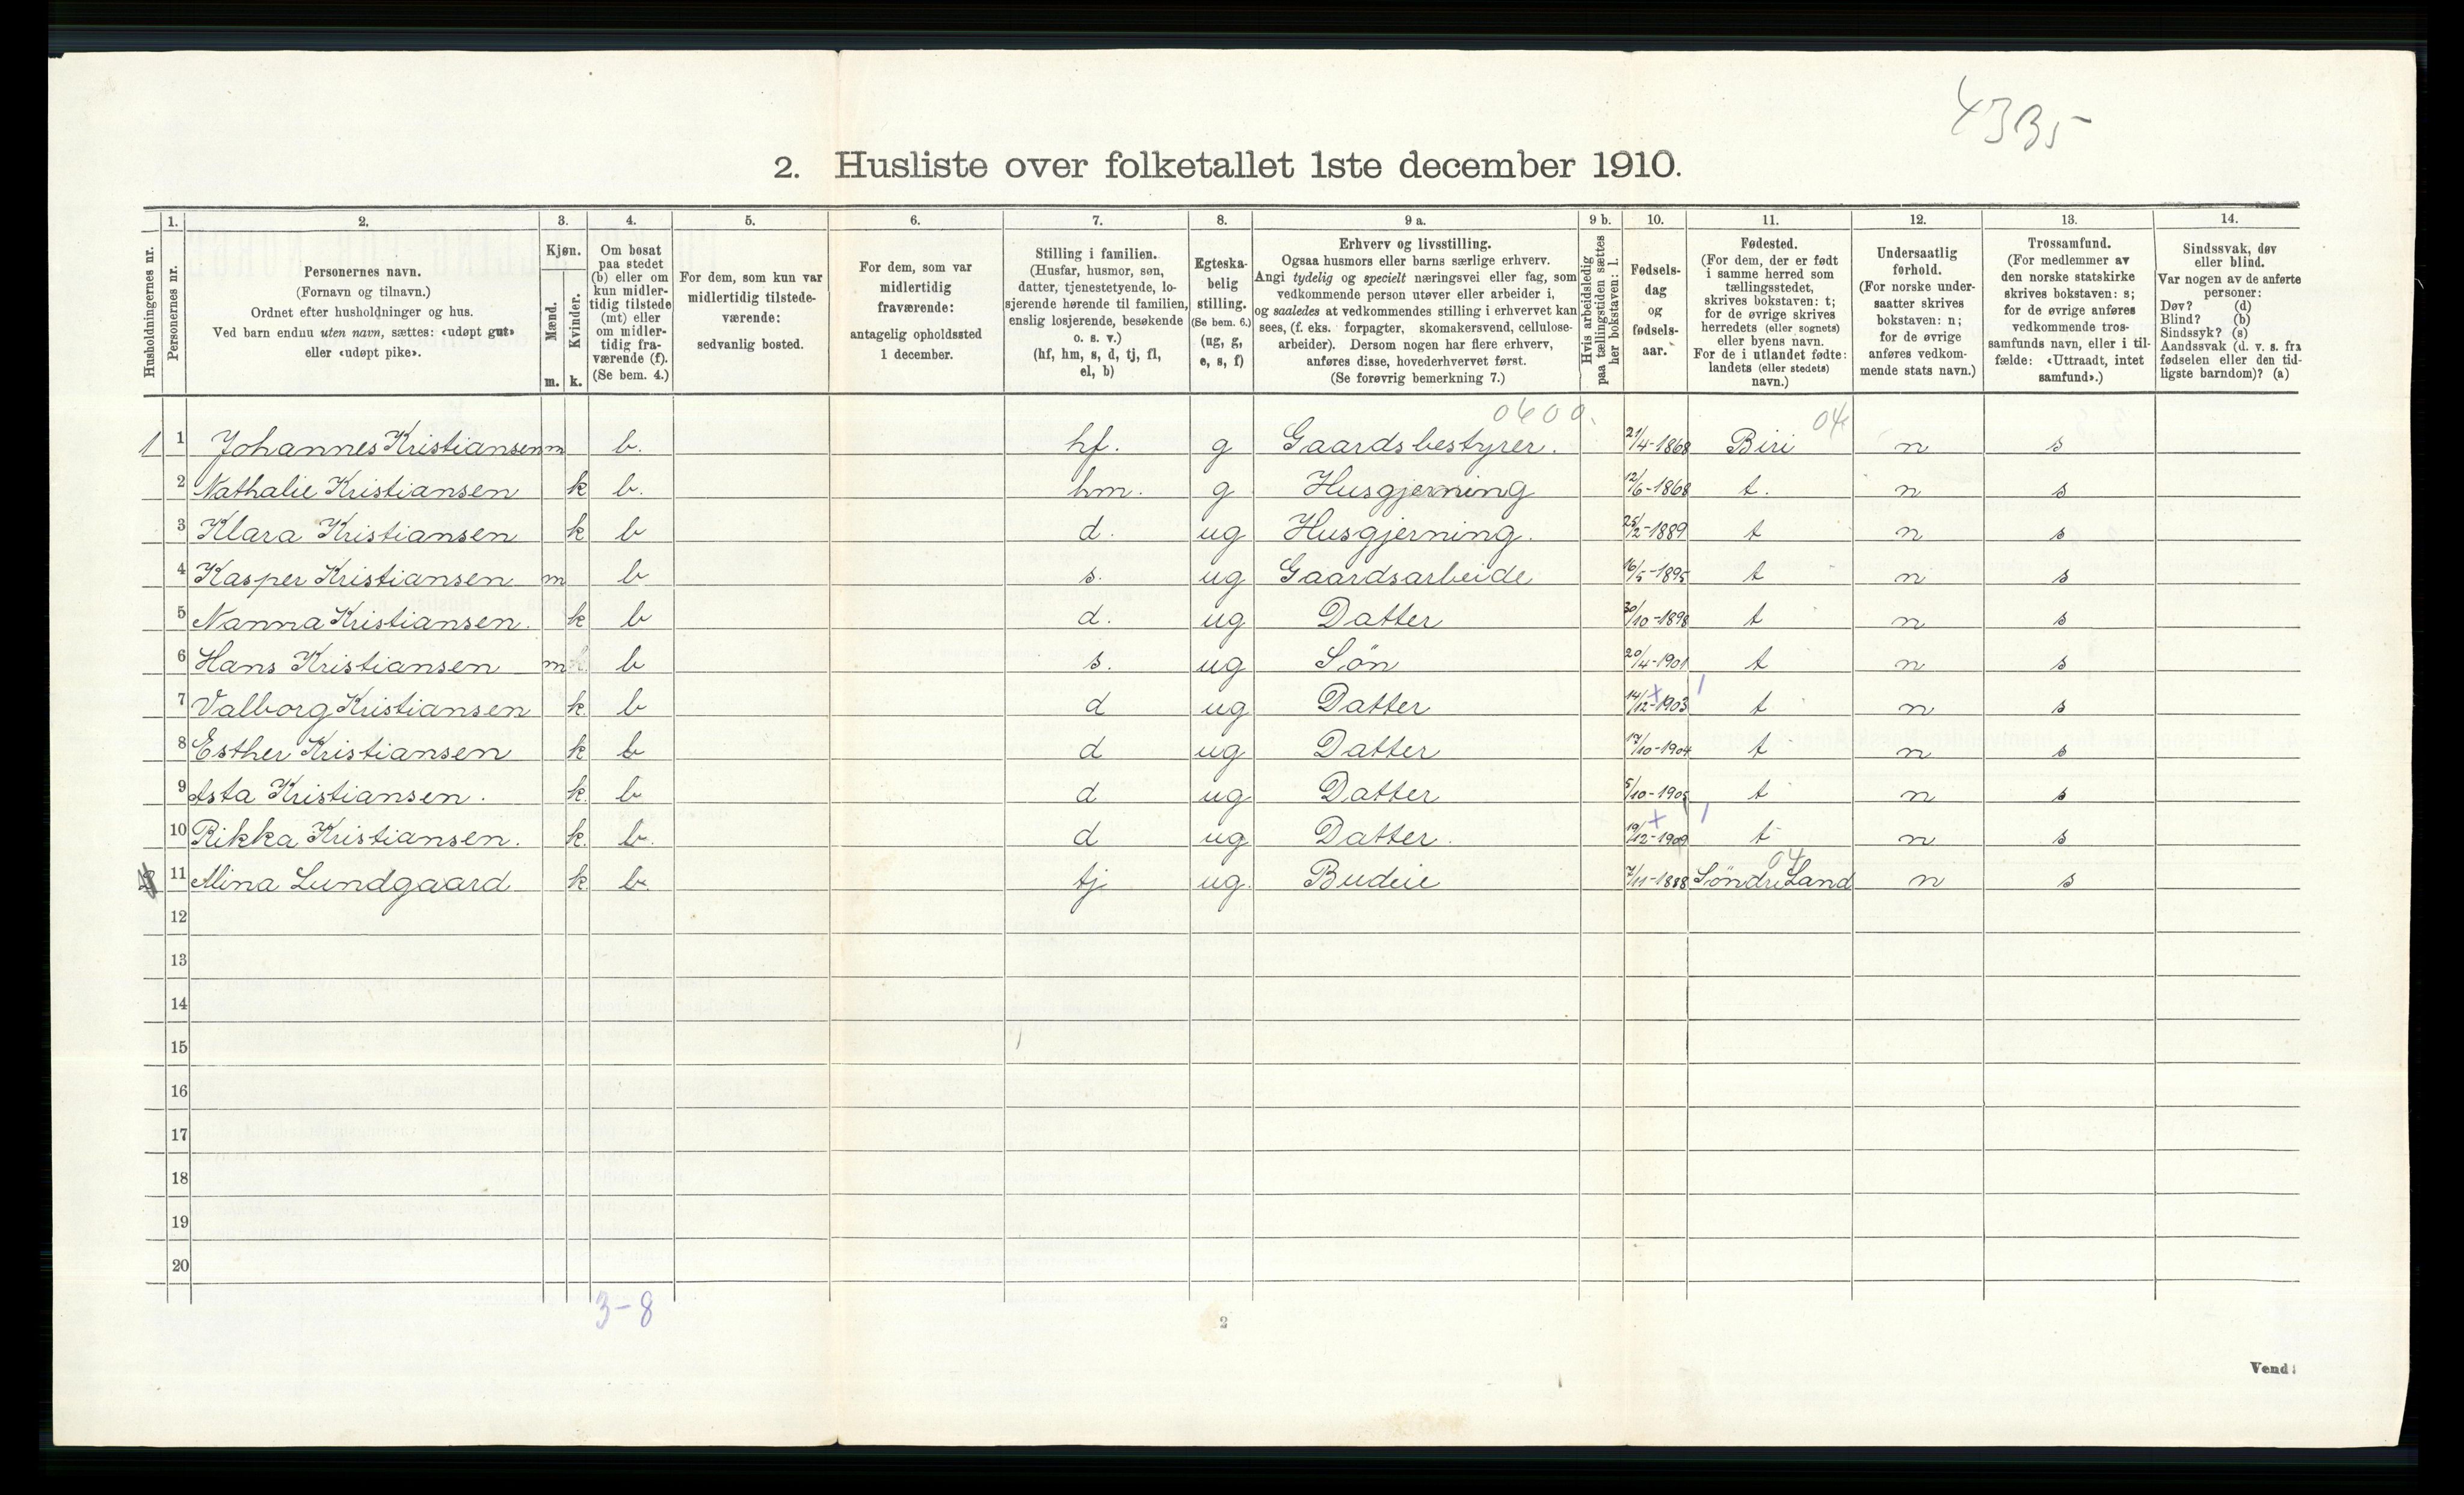 4335
2. Husliste over folketallet 1ste december 1910.
Husholdningernes nr.
1.
Personernes nr.
2.
Personernes navn.
(Fornavn og tilnavn.)
Ordnet efter husholdninger og hus.
Ved barn endnu uten navn, sættes: «udøpt gut»
eller «udøpt pike».
3.
Kjøn.
Mænd.
Kvinder.
m. k.
4.
Om bosat
paa stedet
(b) eller om
kun midler-
tidig tilstede
(mt) eller
om midler-
tidig fra-
værende (f).
(Se bem. 4.)
5.
For dem, som kun var
midlertidig tilstede-
værende:
sedvanlig bosted.
6.
For dem, som var
midlertidig
fraværende:
antagelig opholdssted
1 december.
7.
Stilling i familien.
(Husfar, husmor, søn,
datter, tjenestetyende, lo-
sjerende hørende til familien,
enslig losjerende, besøkende
o. s. v.)
(hf, hm, s, d, tj, fl,
el, b)
8.
Egteska-
belig
stilling.
(Se bem. 6.)
(ug, g,
e, s, f)
9 a.
Erhverv og livsstilling.
Ogsaa husmors eller barns særlige erhverv.
Angi tydelig og specielt næringsvei eller fag, som
vedkommende person utøver eller arbeider i,
og saaledes at vedkommendes stilling i erhvervet kan
sees, (f. eks. forpagter, skomakersvend, cellulose-
arbeider). Dersom nogen har flere erhverv,
anføres disse, hovederhvervet først.
(Se forøvrig bemerkning 7.)
9 b.
Hvis arbeidsledig
paa tællingstiden sættes
her bokstaven: l.
10.
Fødsels-
dag
og
fødsels-
aar.
11.
Fødested.
(For dem, der er født
i samme herred som
tællingsstedet,
skrives bokstaven: t;
for de øvrige skrives
herredets (eller sognets)
eller byens navn.
For de i utlandet fødte:
landets (eller stedets)
navn.)
12.
Undersaatlig
forhold.
(For norske under-
saatter skrives
bokstaven: n;
for de øvrige
anføres vedkom-
mende stats navn.)
13.
Trossamfund.
(For medlemmer av
den norske statskirke
skrives bokstaven: s;
for de øvrige anføres
vedkommende tros-
samfunds navn, eller i til-
fælde: «Uttraadt, intet
samfund».)
14.
Sindssvak, døv
eller blind.
Var nogen av de anførte
personer:
Døv? (d)
Blind? (b)
Sindssyk? (s)
Aandssvak (d. v. s. fra
fødselen eller den tid-
ligste barndom)? (a)
0600. 04
1 1 Johannes Kristiansen m b. hf. g Gaardsbestyrer. 21/4-1868 Biri n s
2 Nathalie Kristiansen k b. hm. g Husgjerning 12/6-1868 t. n s
3 Klara Kristiansen k b d. ug Husgjerning. 25/2-1889 t n s
4 Kasper Kristiansen m b s. ug Gaardsarbeide 16/5-1895 t n s
5 Nanna Kristiansen. k b d. ug Datter 30/10-1898 t n s
6 Hans Kristiansen m b s. ug Søn 20/4-1901 t n s
7 Valborg Kristiansen k. b d ug Datter 14/12-1903 t n s
8 Esther Kristiansen k b d ug Datter 17/10-1904 t n s
9 Asta Kristiansen. k. b d ug Datter 5/10-1905 t n s
10 Rikka Kristiansen. k. b. d ug Datter. 19/12-1909 t n s
04
11 Mina Lundgaard k b. tj ug. Budeie 7/11-1888 Søndre Land n s
12
13
14
15
16
17
18
19
20
3-8
2
Vend!